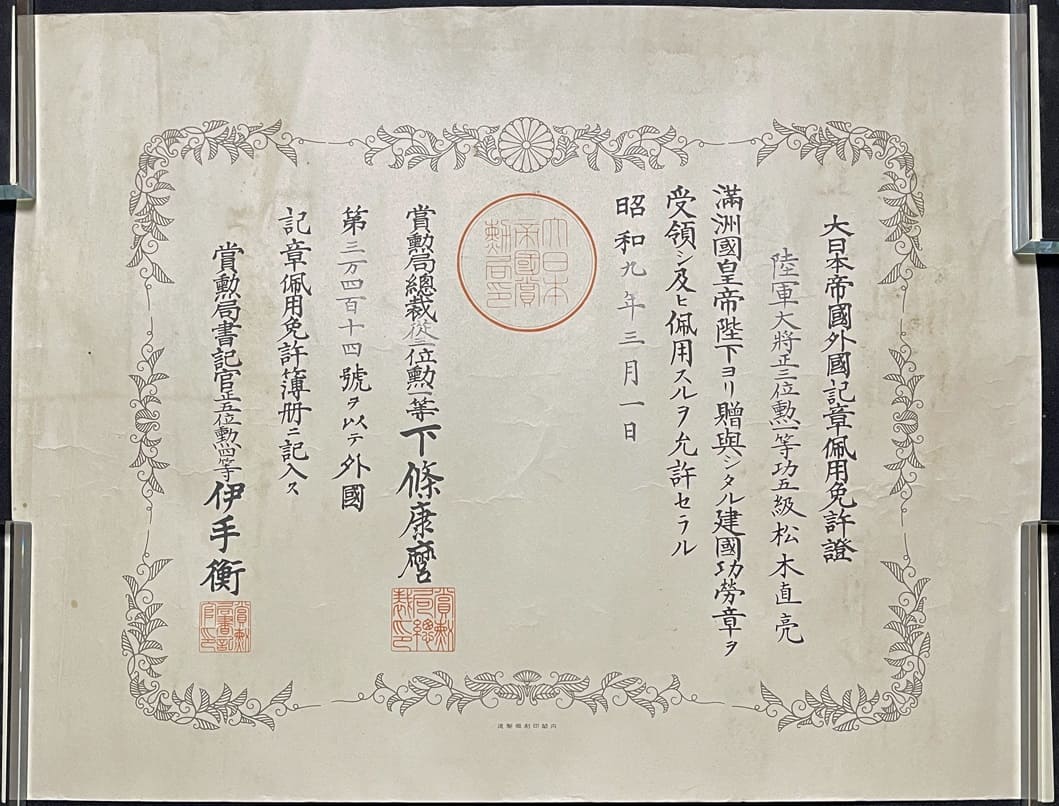 大日本帝國外國記章佩用免許證
陸軍大將正三位勲一等功五級松木直亮
滿洲國皇帝陛下ヨリ贈與シタル建國功勞章ヲ
受領シ及ヒ佩用スルヲ允許セラル
昭和九年三月一日
大日本帝國賞勲局印
賞勲局總裁從三位勲一等下條康麿
賞勲局總裁印
第三万四百十四號ヲ以テ外國
記章佩用免許簿册ニ記入ス
賞勲局書記官正五位勲四等伊手衡
賞勲局書記官印
内閣印刷局製造